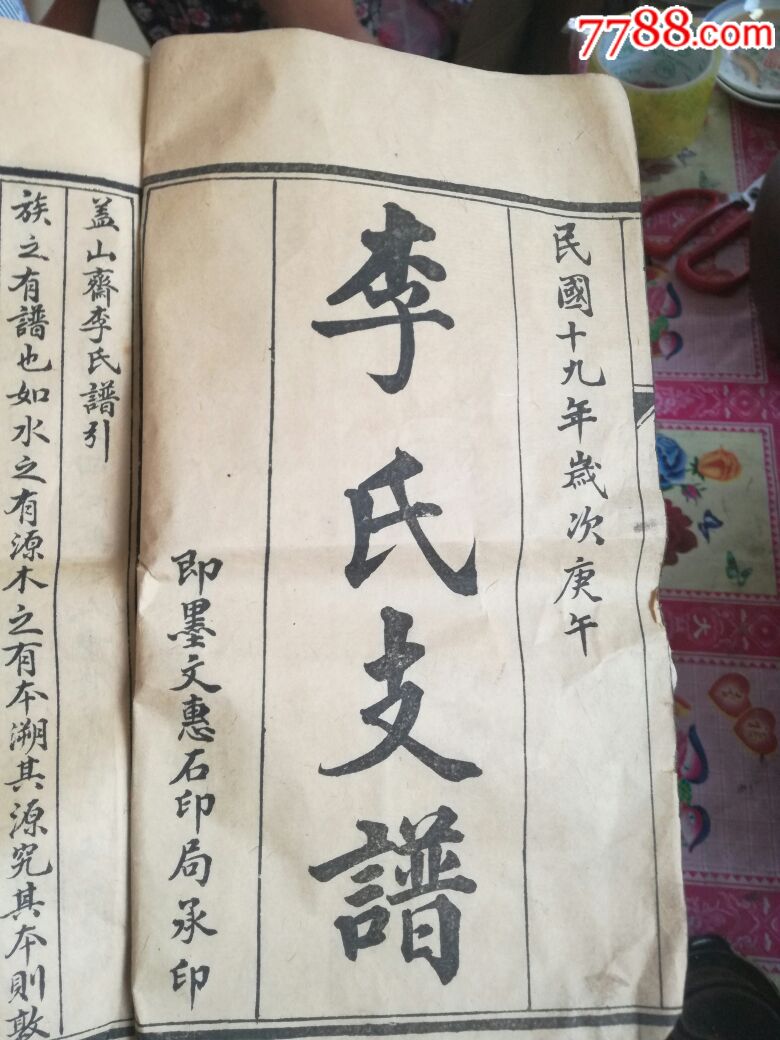 7788.com
民國十九年歲次庚午
李氏支譜
即墨文惠石印局承印
盖山齋李氏譜引
族之有譜也如水之有源木之有本溯其源究其本則敦